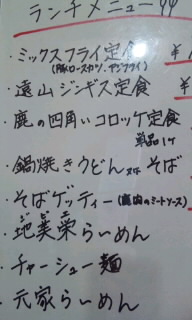 ランチメニュー
・ミックスフライ定食 ¥
(豚ロースカツ、チキンフライ)
・遠山ジンギス定食
・鹿の四角いコロッケ定食
単品1ケ
・鍋焼きうどん又はそば
・そばゲッティー(鹿肉のミートソース)
・地美栄らぃめん
・チャーシュー麺
・元家らぃめん